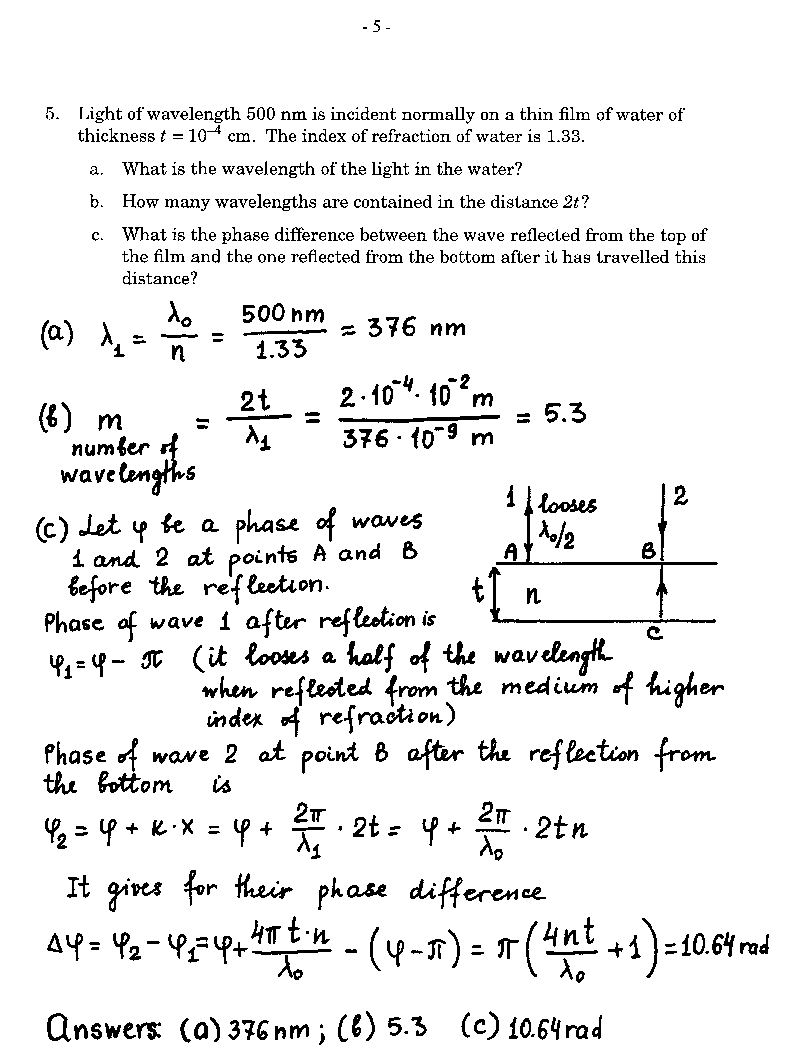 - 5 -
5. Light of wavelength 500 nm is incident normally on a thin film of water of
thickness t = 10⁻⁴ cm. The index of refraction of water is 1.33.
a. What is the wavelength of the light in the water?
b. How many wavelengths are contained in the distance 2t?
c. What is the phase difference between the wave reflected from the top of
the film and the one reflected from the bottom after it has travelled this
distance?
(a) λ₁ = λ₀/n = 500 nm/1.33 = 376 nm
(b) m = 2t/λ₁ = 2·10⁻⁴·10⁻² m/376·10⁻⁹ m = 5.3
number of
wavelengths
1 looses λ₀/2
2
A B
t n
C
(c) Let φ be a phase of waves
1 and 2 at points A and B
before the reflection.
Phase of wave 1 after reflection is
φ₁ = φ - π (it looses a half of the wavelength
when reflected from the medium of higher
index of refraction)
Phase of wave 2 at point B after the reflection from
the bottom is
φ₂ = φ + K·X = φ + 2π/λ₁ · 2t = φ + 2π/λ₀ · 2tn
It gives for their phase difference
Δφ = φ₂ - φ₁ = φ + 4πt·n/λ₀ - (φ - π) = π(4nt/λ₀ + 1) = 10.64 rad
Answers: (a) 376 nm ; (b) 5.3 (c) 10.64 rad